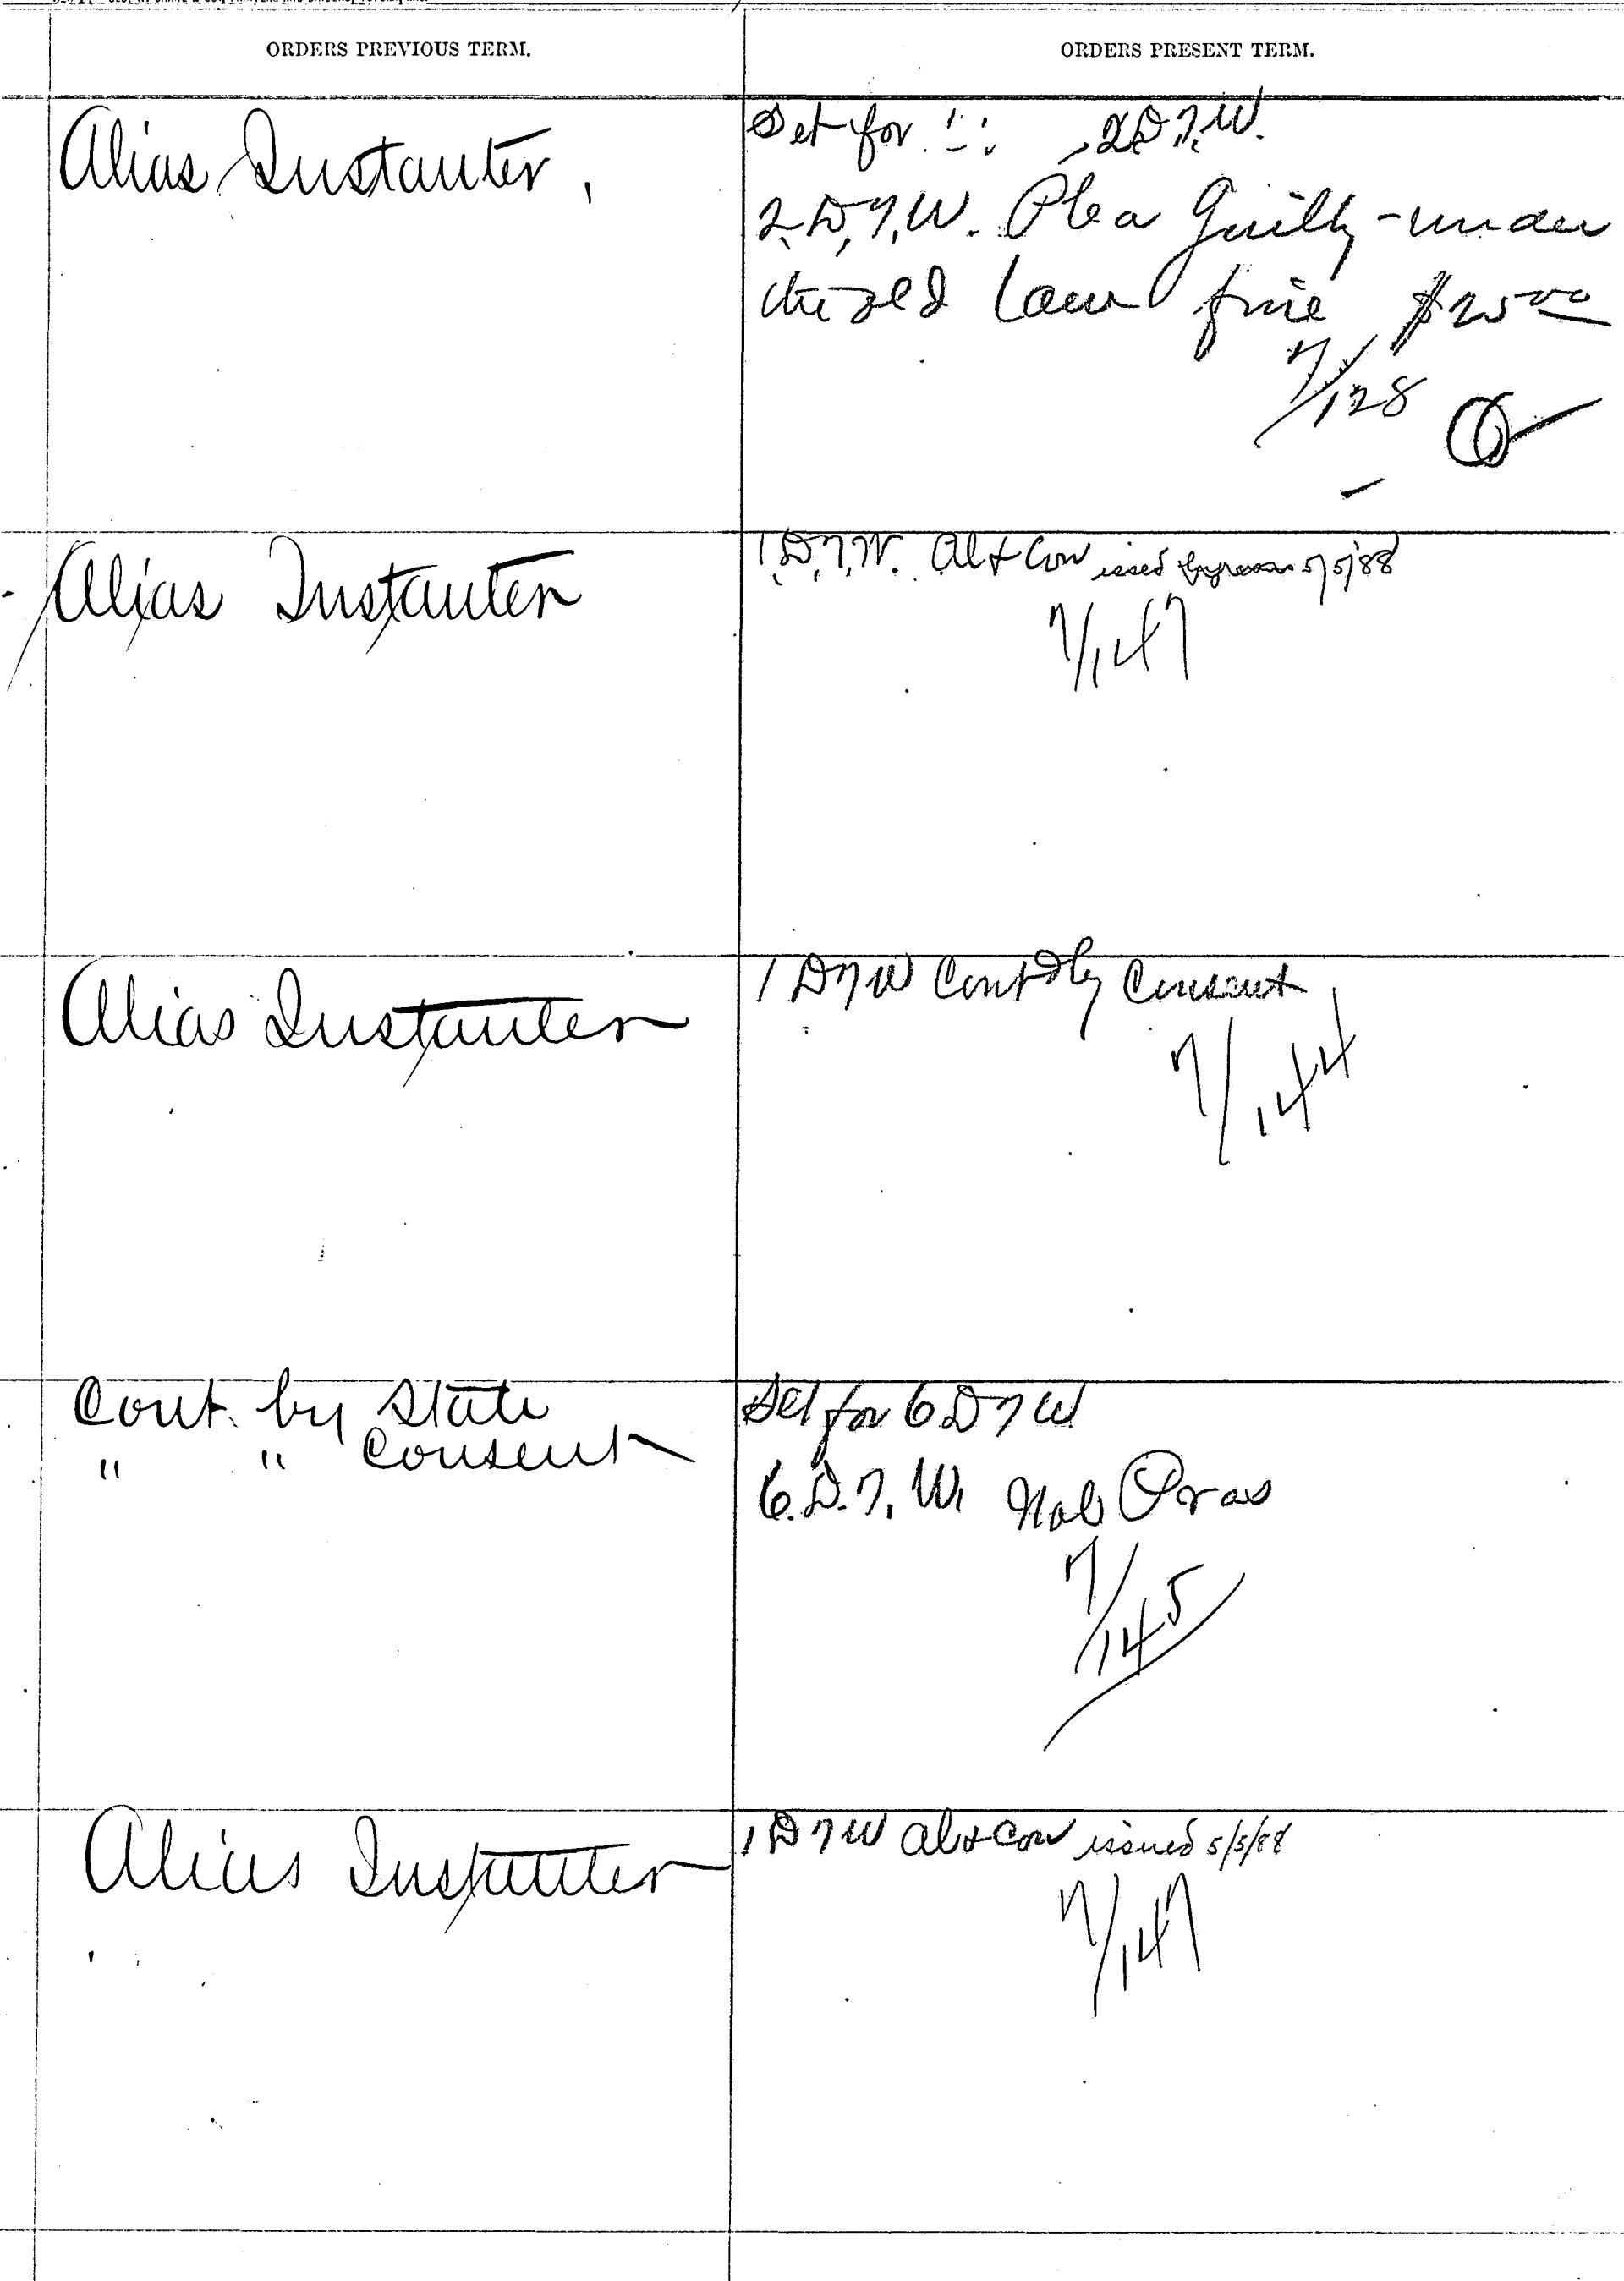 ORDERS PREVIOUS TERM.
ORDERS PRESENT TERM.
Alias Instanter,
Set for 2D.7.W.
2.D.7.W. Plea Guilty - under
the old law fine $25 00
7/128
Alias Instanter
1.D.7.W. Al & Con issued 5/5/88
7/147
Alias Instanter
1 D 7 W Contd by Consent
7/144
Cont. by State
" " Consent
Set for 6 D 7 W
6.D.7.W. Nol Pros
7/145
Alias Instanter
1 D 7 W Al & Con issued 5/5/88
7/147